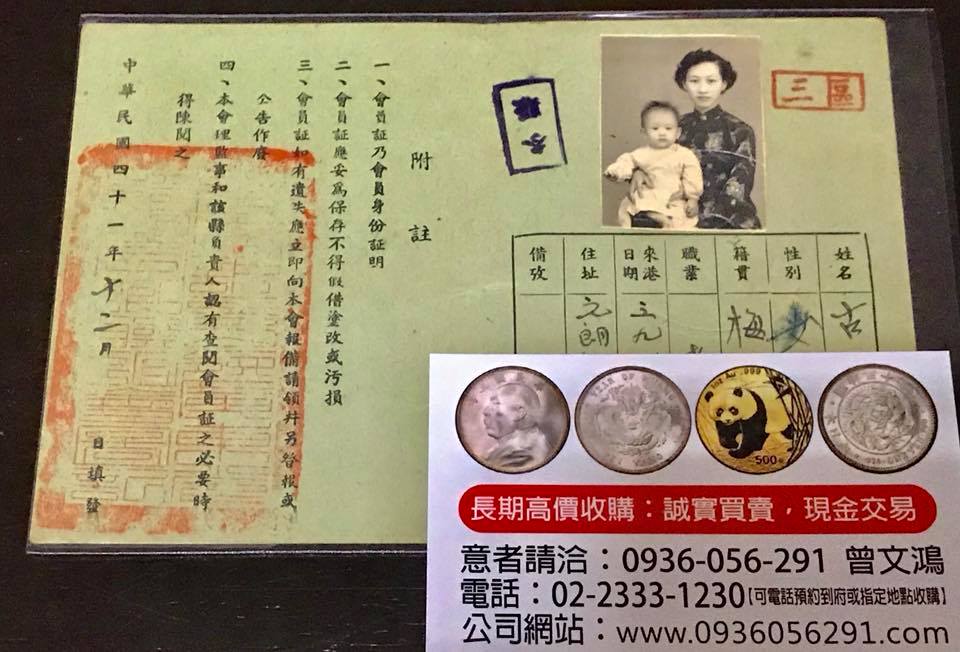 三區
姓名 古
性別 女
籍貫 梅
職業
來港日期 三九
住址 元朗
備攷
附註
一、會員証乃會員身份証明
二、會員証應妥爲保存不得假借塗改或污損
三、會員証如有遺失應立即向本會報備請領幷另登報或
公告作廢
四、本會理監事和該縣負責人認有查閱會員証之必要時
得陳閱之
中華民國四十一年十二月 日填發
1oz Au .999
500元
長期高價收購：誠實買賣，現金交易
意者請洽：0936-056-291 曾文鴻
電話：02-2333-1230【可電話預約到府或指定地點收購】
公司網站：www.0936056291.com